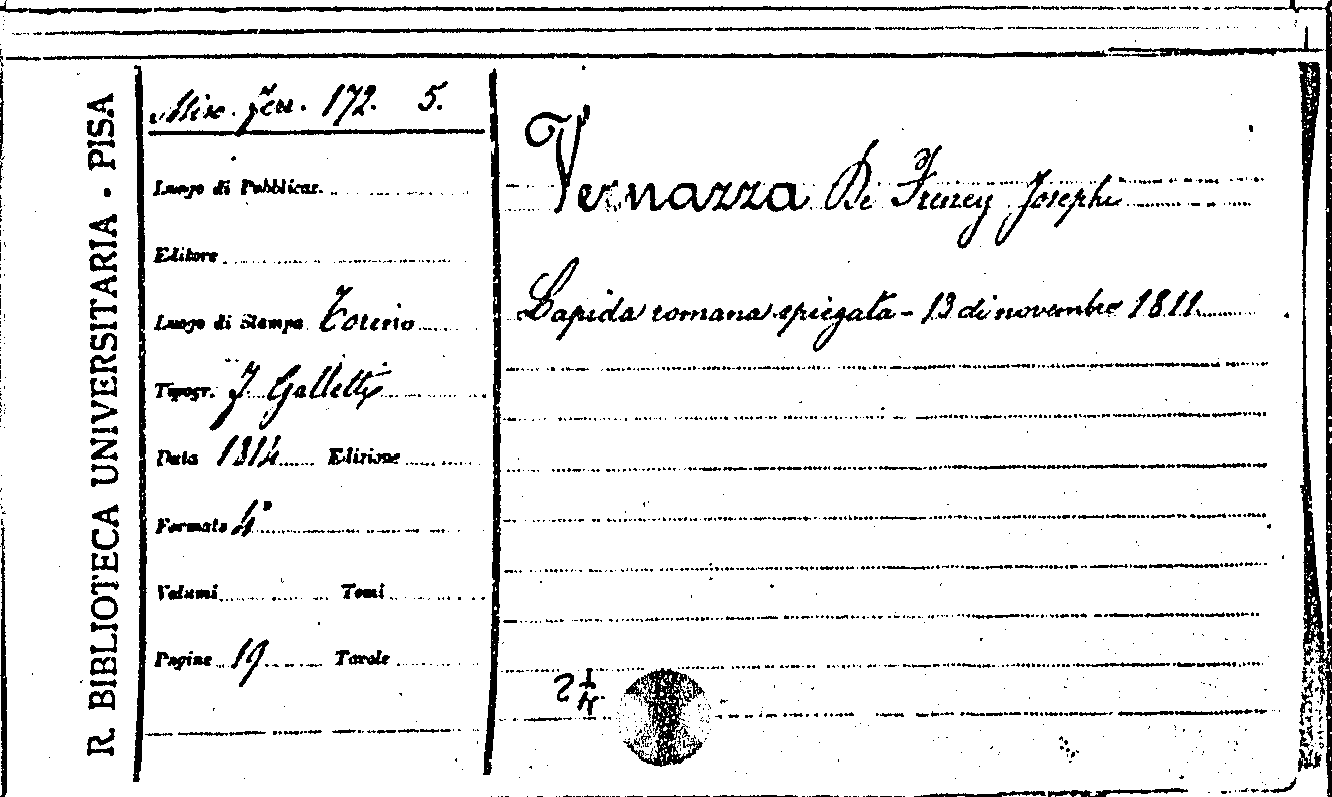 R. BIBLIOTECA UNIVERSITARIA - PISA
Misc. 172. 5.
Luogo di Pubblicaz.
Editore
Luogo di Stampa Torino
Topogr. J. Galletti
Data 1814 Edizione
Formato 4°
Volumi Tomi
Pagine 19 Tavole
Vernazza De Freney Joseph
Lapida romana spiegata - 13 di novembre 1811